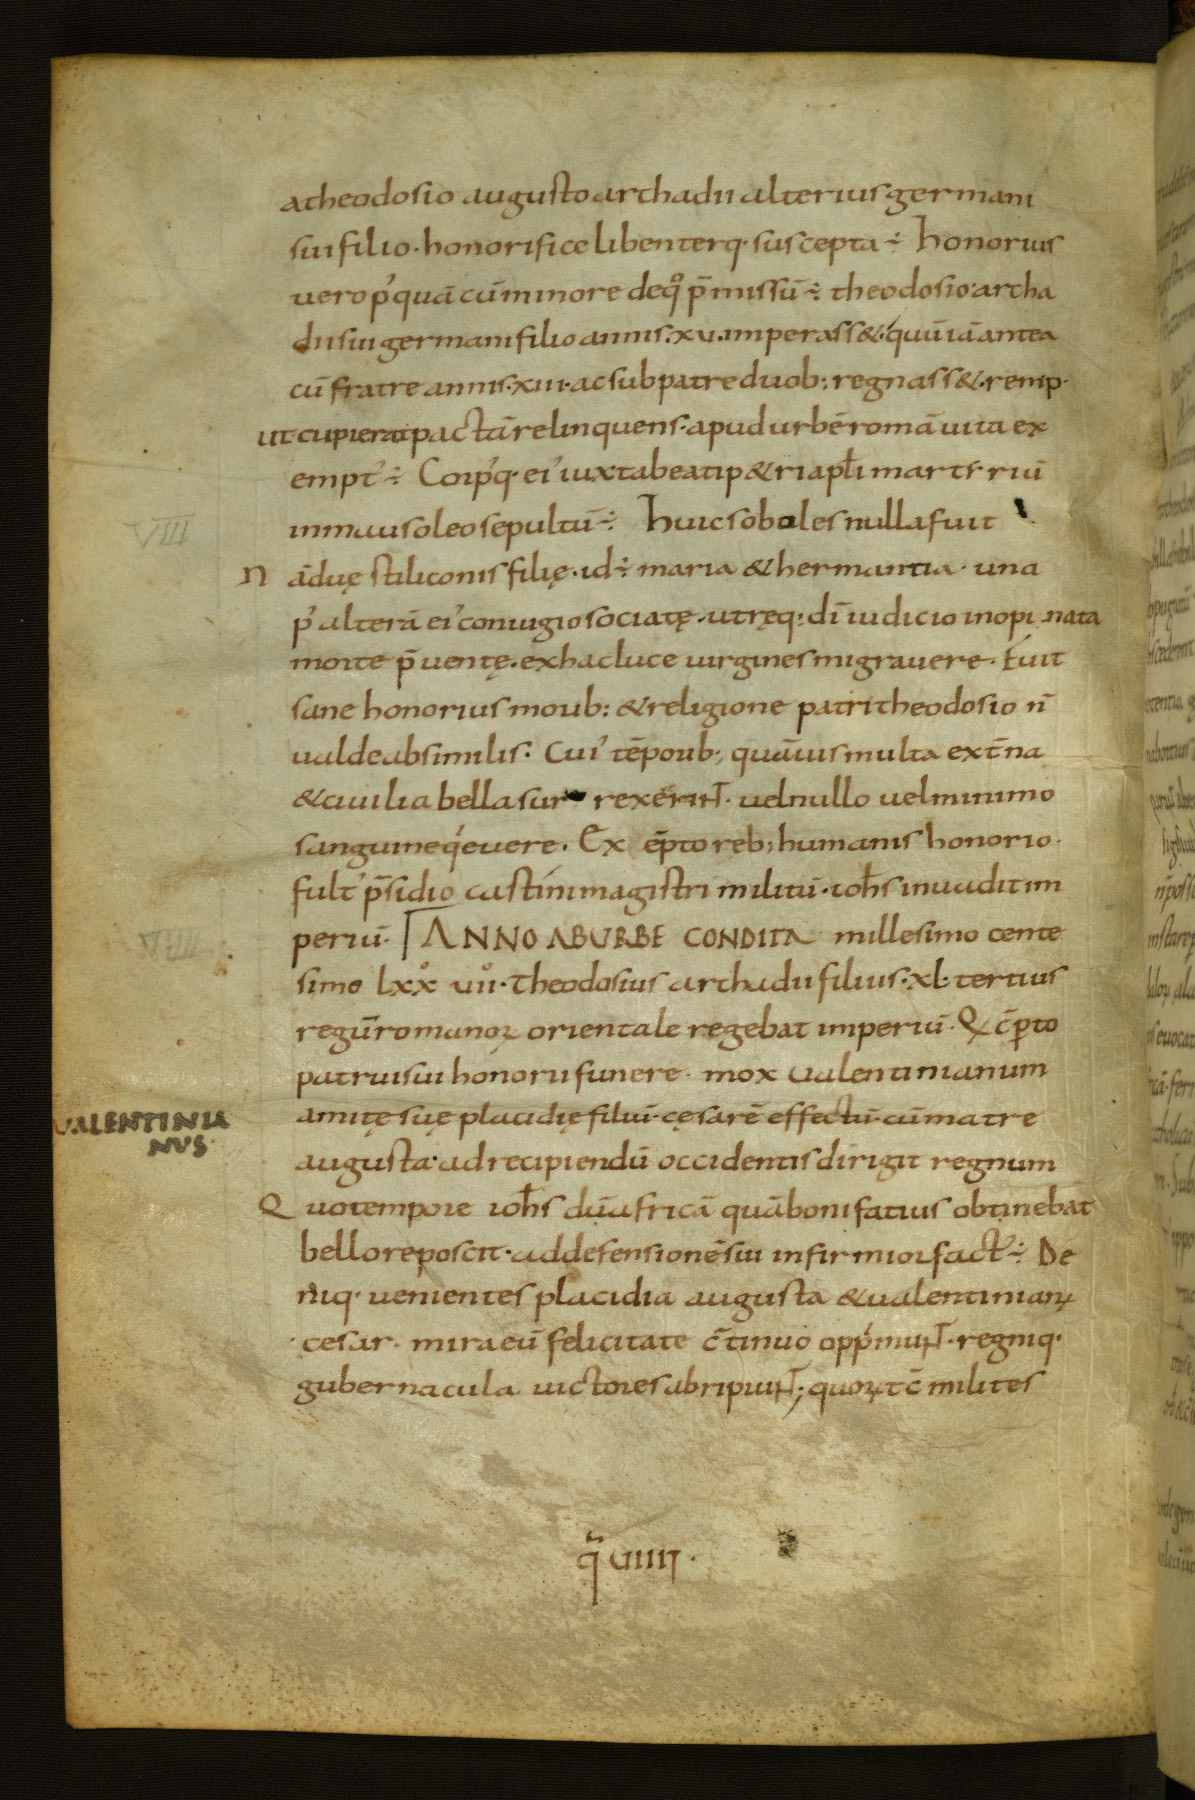 a theodosio augusto archadii alterius germani
sui filio · honorifice libenterq· suscepta ÷ honorius
uero p᾽quā cū minore deq̊ p̄missū ÷ theodosio · archa
dii sui germani filio annis · xv · imperass& · quū iā antea
cū fratre annis · xiii · ac sub patre duob: regnass& · remp·
ut cupierat pactā relinquens · apud urbē romā uita ex
empt᾽ ÷ Corp᾽q· ei᾽ iuxta beati p&ri apłi martẏriū
in mausoleo sepultū ÷ huic soboles nulla fuit
N ā duę stiliconis filię · id ÷ maria & hermantia · una
p᾽ alterā ei᾽ coniugio sociatę · utręq: dī iudicio inopinata
morte p̄uentę · ex hac luce uirgines migrauere · Fuit
sane honorius morib: & religione patri theodosio n̄
ualde absimilis · Cui᾽ tēporib; quāuis multa ext̄na
& ciuilia bella sur rexerunt · uel nullo uel minimo
sanguine q᾽euere · Ex ēpto reb; humanis honorio ·
fult᾽ p̄sidio castini magistri militū · ioħs inuadit im
periū · ANNO AB URBE CONDITA millesimo cente
simo lxx̊ vii̊ · Theodosius archadii filius · xl · tertius
regū romanoꝝ orientale regebat imperiū · Q c̄perto
patrui sui honorii funere · mox ualentinianum
amitę suę placidię filiū · cęsarē effectū · cū matre
augusta · ad recipiendū occidentis dirigit regnum
VALENTINIA
NVS·
Q uo tempore ioħs dū africā quā bonifatius obtinebat
bello reposcit · ad defensionē sui infirmior fact᾽ ÷ De
niq· uenientes placidia augusta & ualentinianꝰ
cesar · mira eū felicitate c̄tinuo opp᾽munt · regniq·
gubernacula uictores abripiunt; quoꝝ tc̄ milites
q̄ VIIII ·